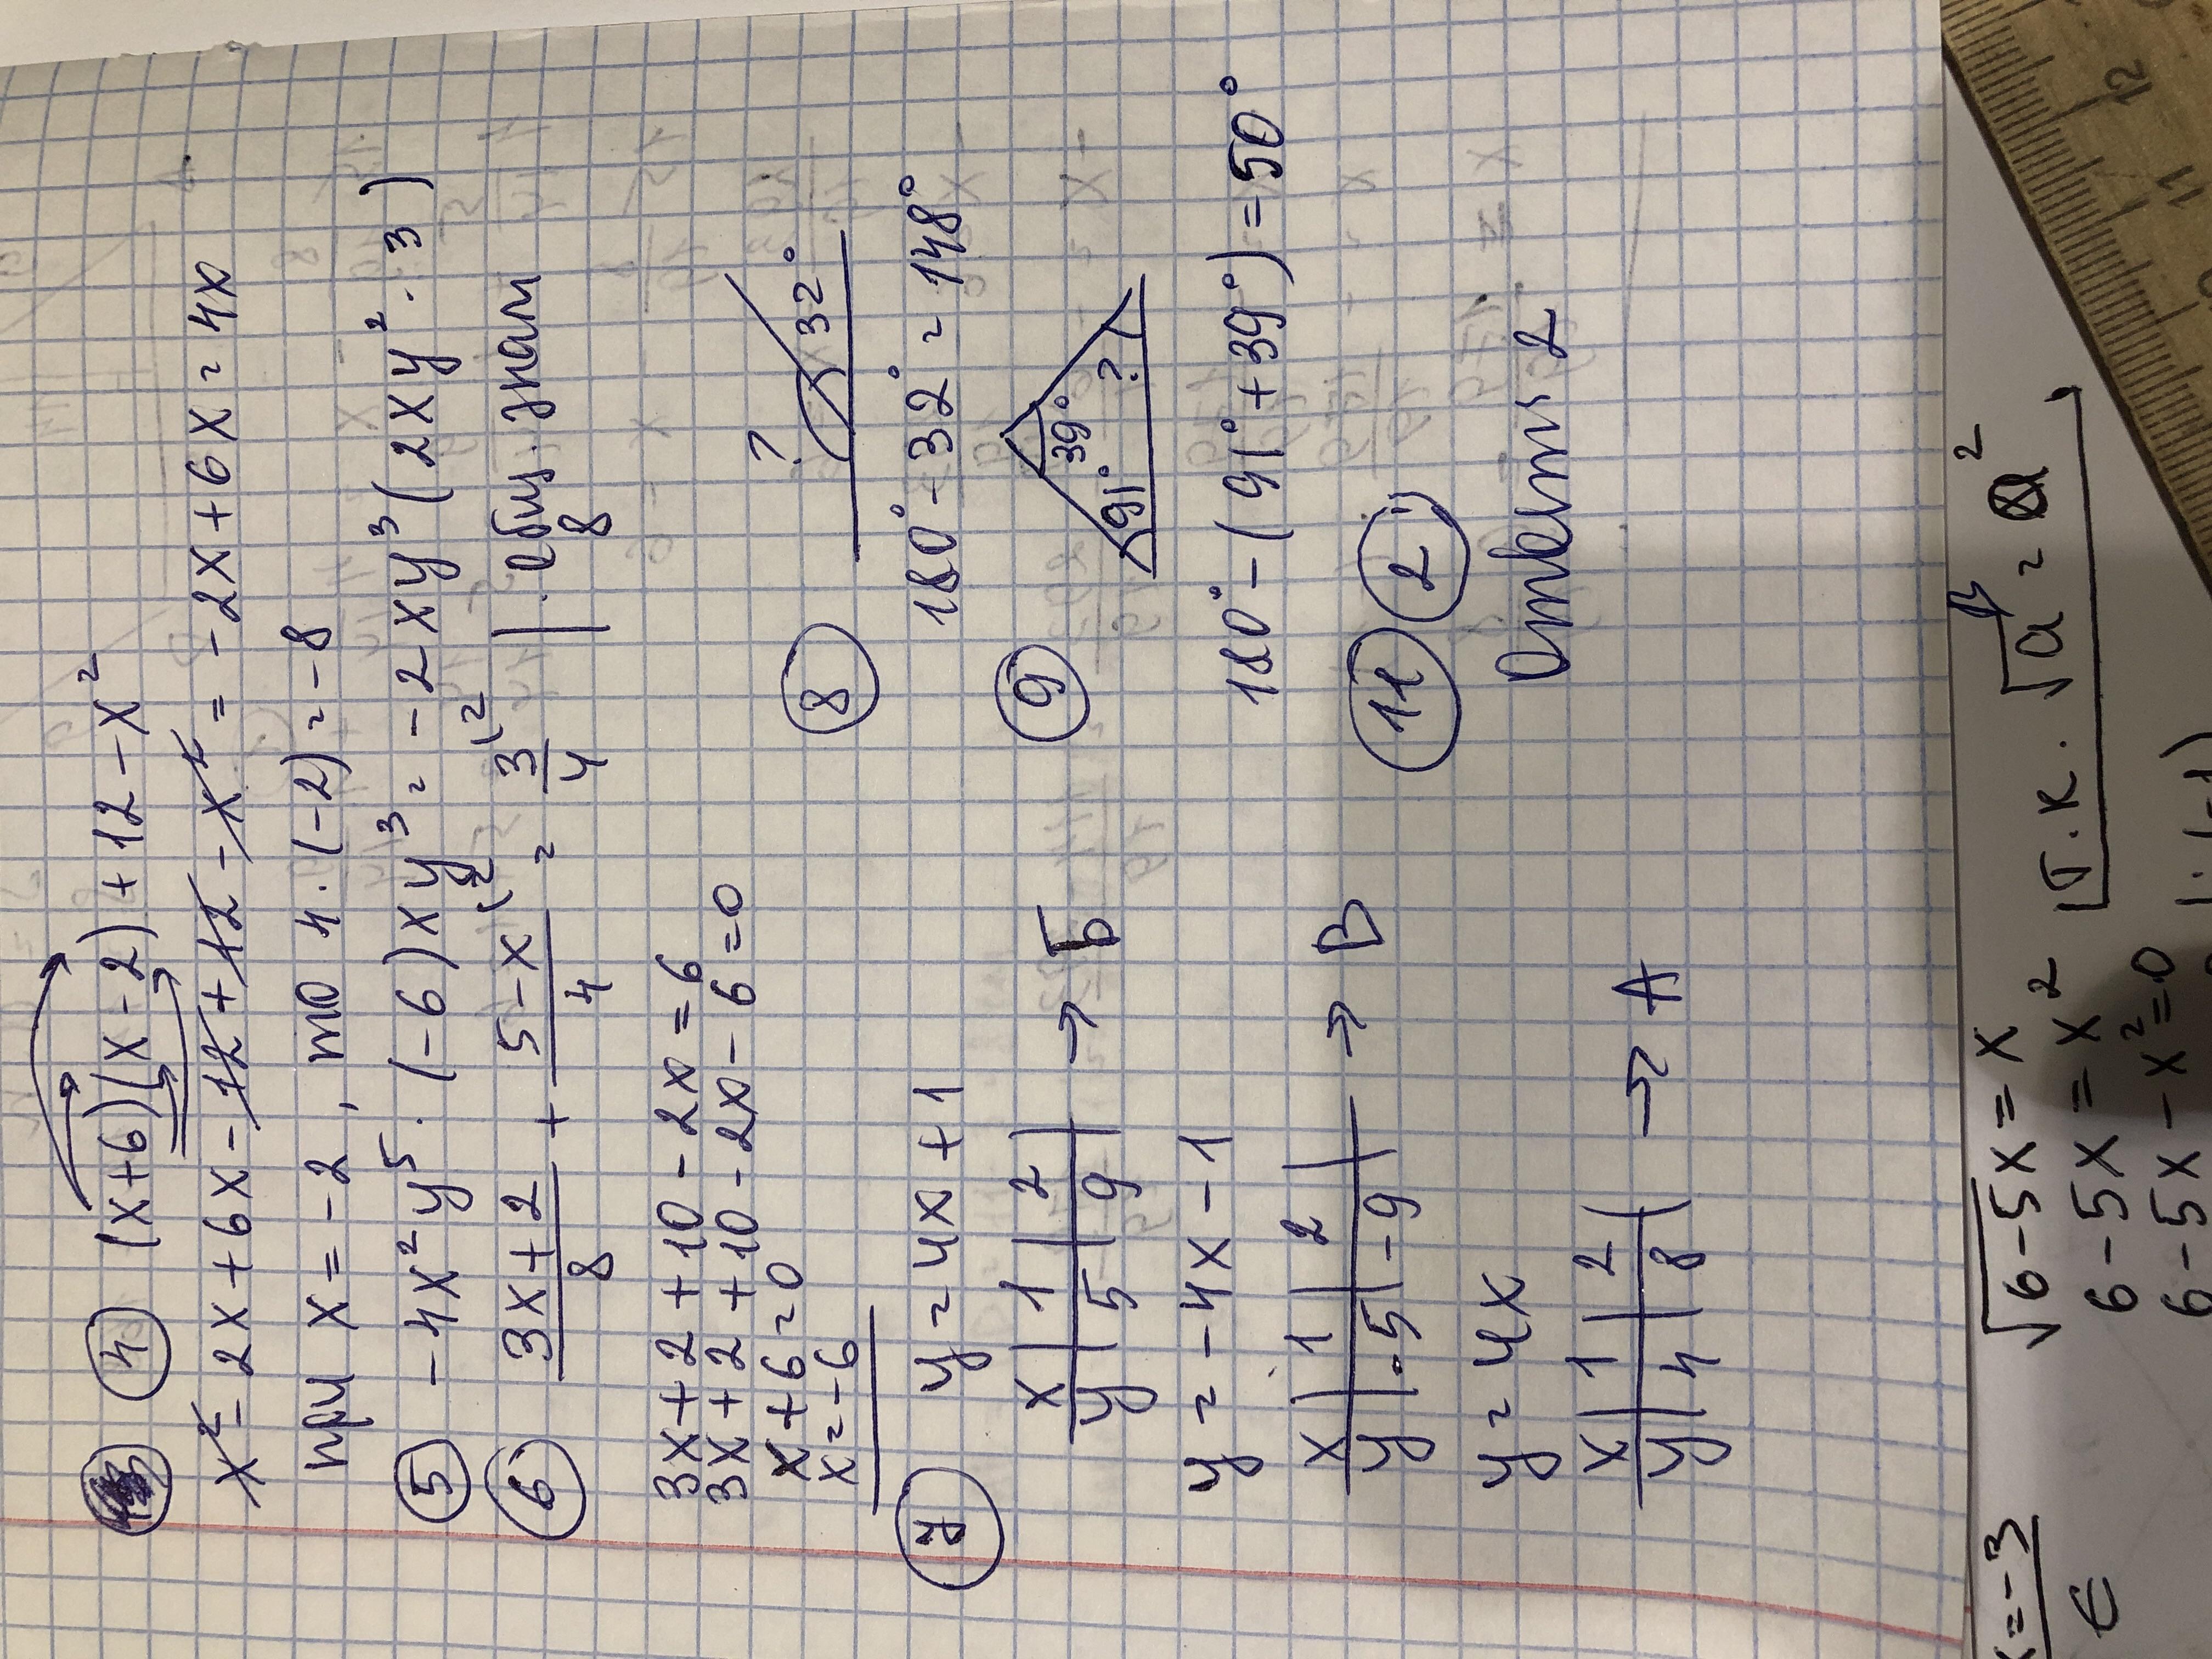 ④ (x+6)(x-2)+12-x²
x²-2x+6x-12+12-x² = -2x+6x=4x
при x=-2, то 4·(-2)=-8
⑤ -4x²y⁵·(-6)xy³=-2xy³(2xy²·3)
⑥ (3x+2)/8 + (5-x)/4 (2 = 3/4 (2 |· общ. знам 8
3x+2+10-2x=6
3x+2+10-2x-6=0
x+6=0
x=-6
⑦ y=4x+1
x | 1 | 2
y | 5 | 9 → Б
y=-4x-1
x | 1 | 2
y | -5 | -9 → В
y=4x
x | 1 | 2
y | 4 | 8 → А
⑧ ? 32°
180°-32°=148°
⑨ 91° 39° ?
180°-(91°+39°)=50°
⑪ ②
Ответ 2
x=-3
√6-5x=x
6-5x=x² т.к. √a⁴=a²
6-5x-x²=0